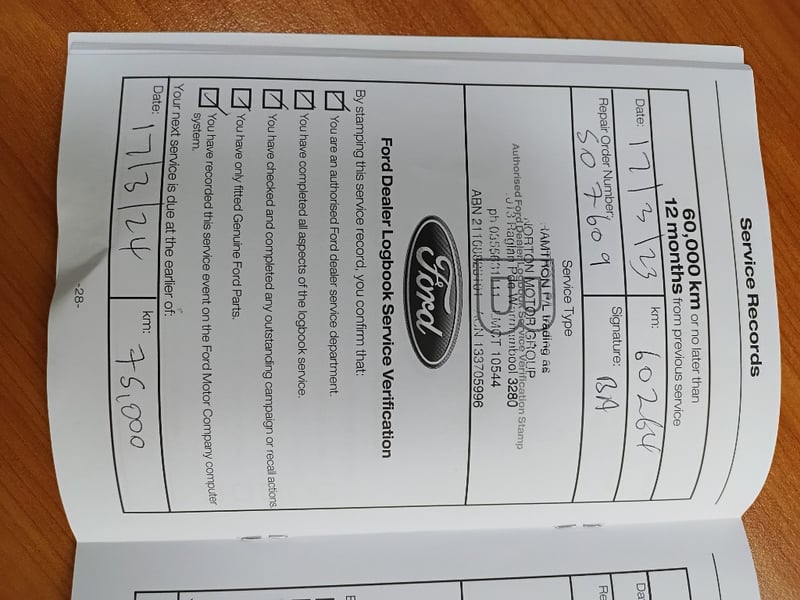 Service Records
60,000 km or no later than
12 months from previous service
Date: 17/3/23
km: 60264
Repair Order Number: 507609
Signature: BA
Service Type
Authorised Ford Dealer Logbook Service Verification Stamp
HAMTHON P/L trading as
NORTON MOTOR GROUP
Raglan Pde Warrnambool 3280
MCT 10544
ACN 133705996
Ford
Ford Dealer Logbook Service Verification
By stamping this service record, you confirm that:
You are an authorised Ford dealer service department.
You have completed all aspects of the logbook service.
You have checked and completed any outstanding campaign or recall actions
You have only fitted Genuine Ford Parts.
You have recorded this service event on the Ford Motor Company computer
system.
Your next service is due at the earlier of:
Date: 17/3/24
km: 75,000
-28-